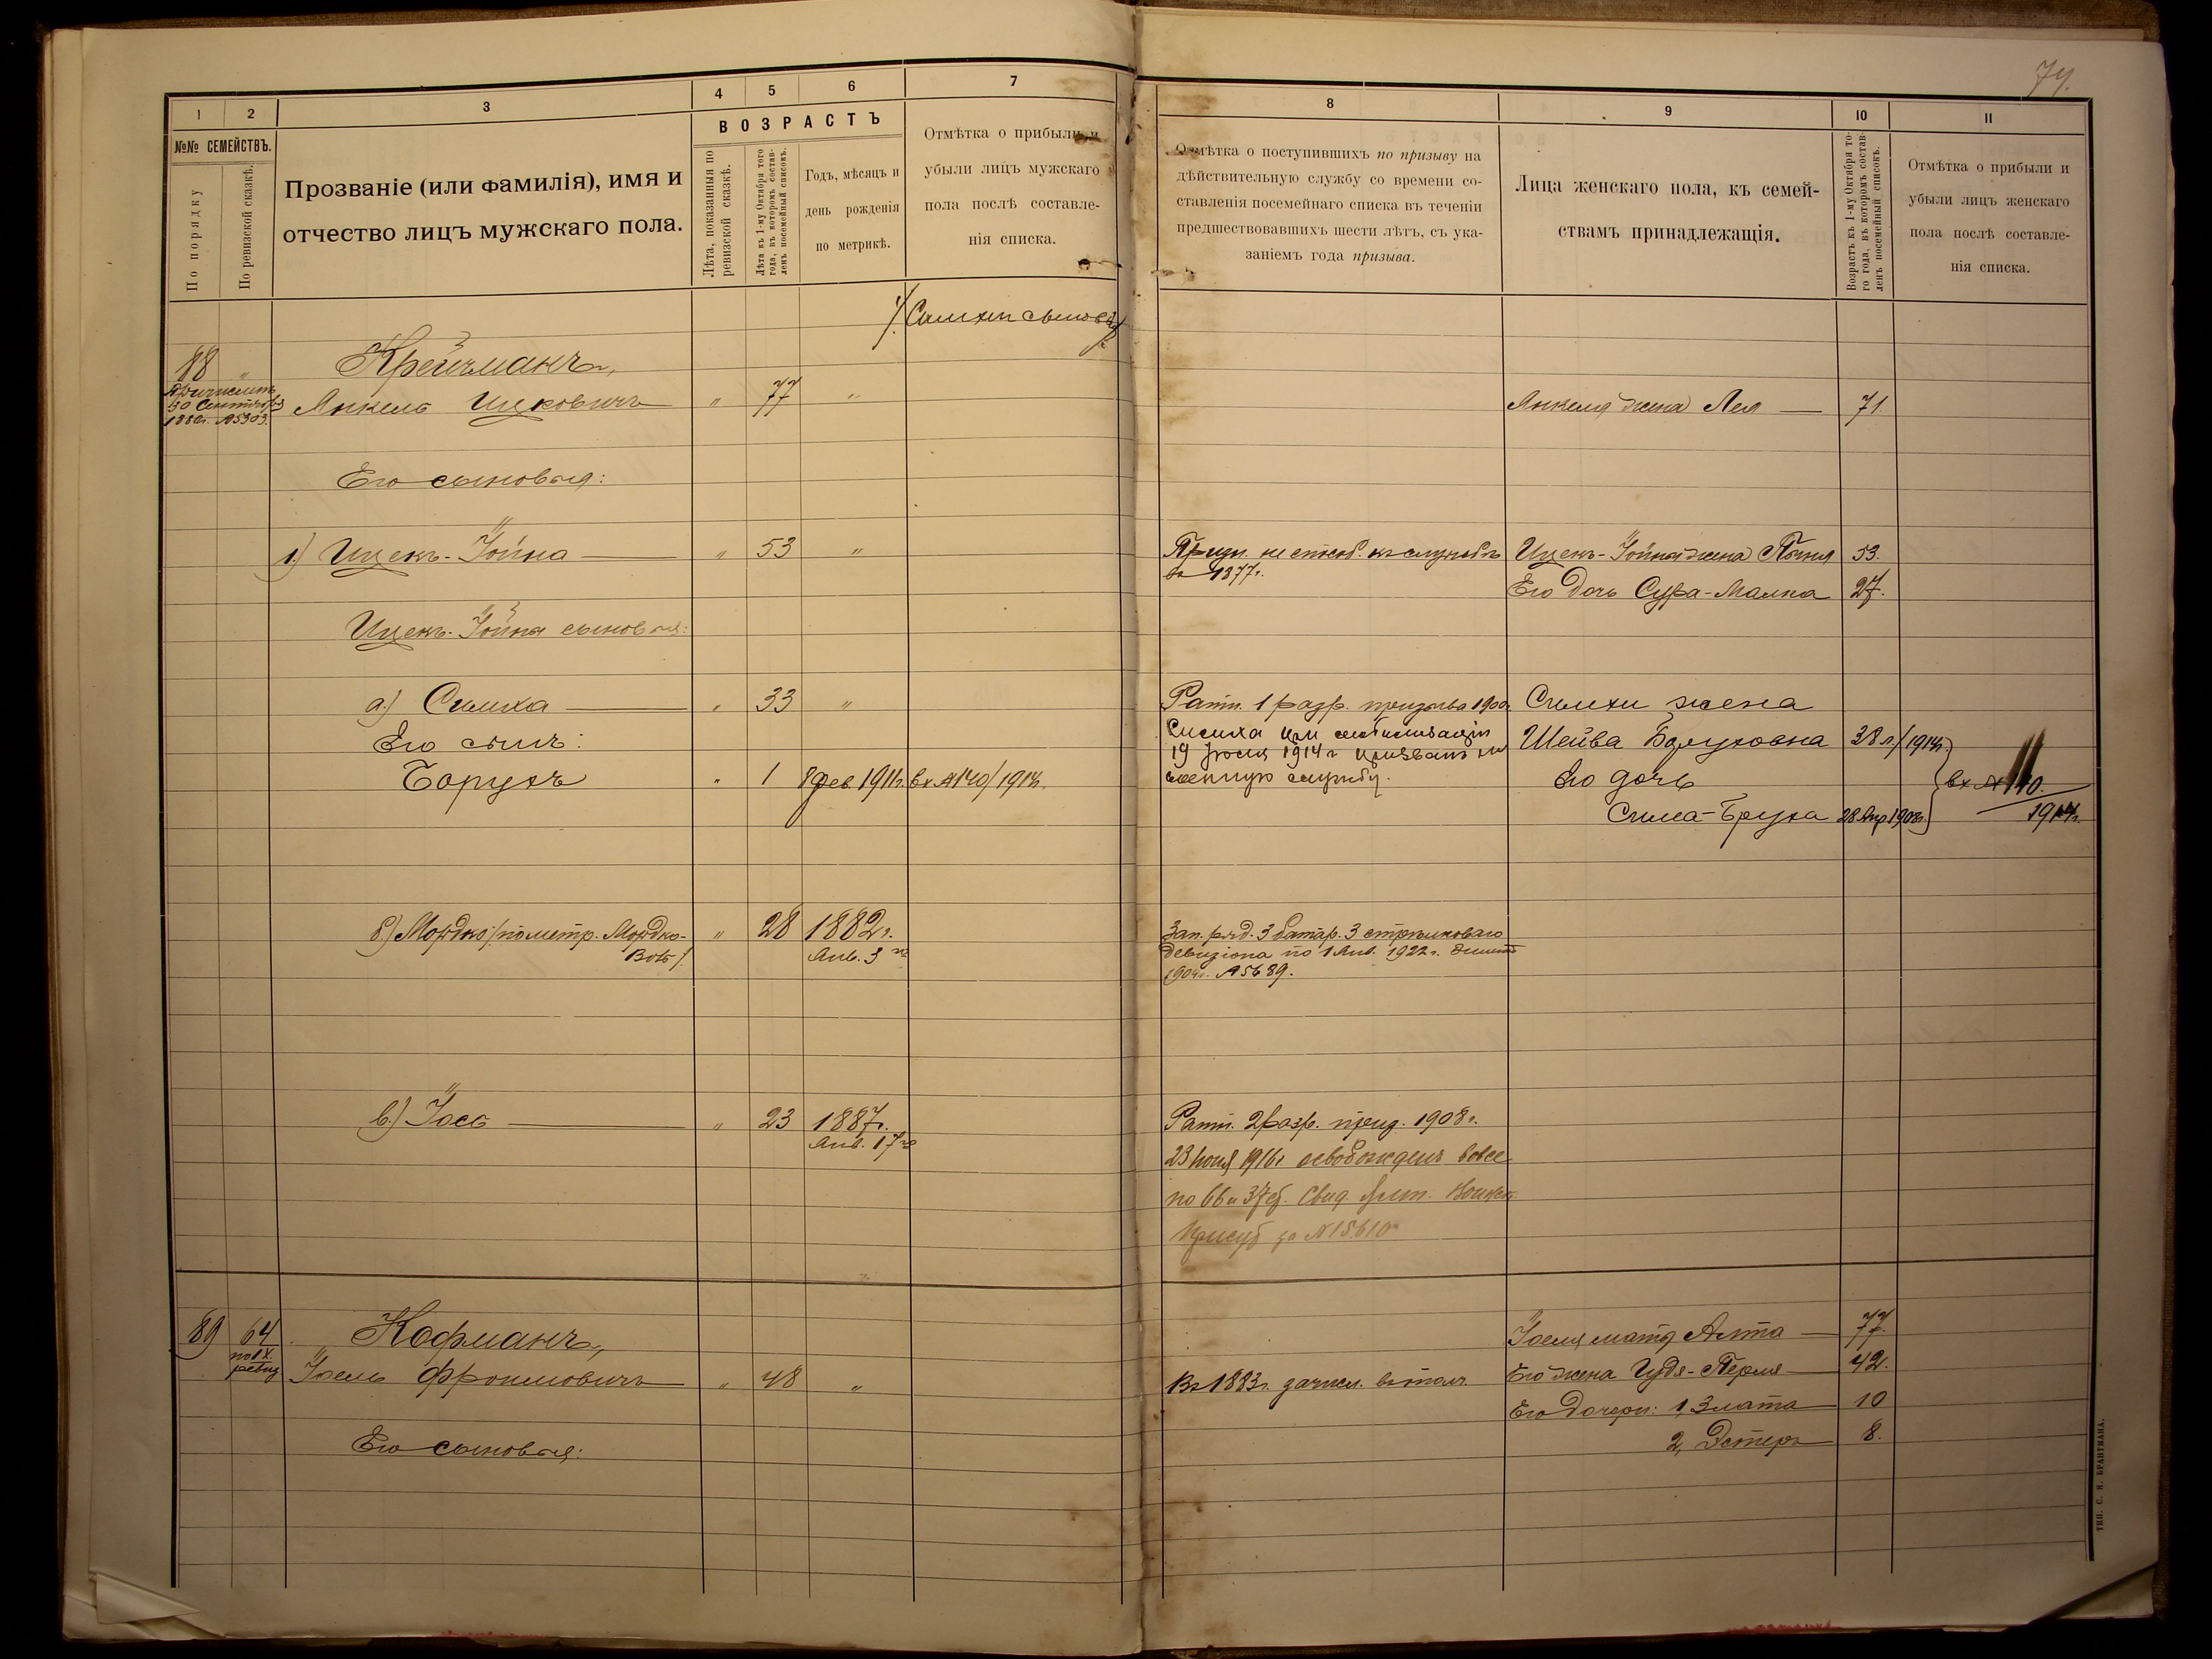 74.
1
2
3
4
5
6
7
№№ СЕМЕЙСТВЪ.
По порядку
По ревизской сказкѣ.
Прозваніе (или фамилія), имя и
отчество лицъ мужскаго пола.
ВОЗРАСТЪ
Лѣта, показанныя по
ревизской сказкѣ.
Лѣта къ 1-му Октября того
года, въ которомъ состав-
ленъ посемейный списокъ.
Годъ, мѣсяцъ и
день рожденія
по метрикѣ.
Отмѣтка о прибыли и
убыли лицъ мужскаго
пола послѣ составле-
нія списка.
8
9
10
11
Отмѣтка о поступившихъ по призыву на
дѣйствительную службу со времени со-
ставленія посемейнаго списка въ теченіи
предшествовавшихъ шести лѣтъ, съ ука-
заніемъ года призыва.
Лица женскаго пола, къ семей-
ствамъ принадлежащія.
Возрастъ къ 1-му Октября то-
го года, въ которомъ состав-
ленъ посемейный списокъ.
Отмѣтка о прибыли и
убыли лицъ женскаго
пола послѣ составле-
нія списка.
88 "
Крейчманъ,
30 Сентября
№5303.
Янкель Ицковичъ " 77 "
Янкеля жена Лея 71.
Его сыновья:
1) Ицекъ-Іойна " 53 "
Призн. не способ. къ службѣ
въ 1877г.
Ицекъ-Іойна жена 53.
Его дочь Сура-Малка 27.
Ицекъ-Іойна сыновья:
а) Симха " 33 "
Ратн. 1 разр. призыва 1900.
Симхи жена
Его сынъ:
Симха при мобилизаціи
19 1914г призванъ на
военную службу.
Шейва Боруховна 28 л./1914г.
Борухъ " 1 8 фев. 1911г. вх №140/1914г.
Его дочь
вх № 140.
1914г.
Сима-Бруха 28 Апр 1908г.
б) Мордко /по метр. Мордко-
Вов/.
" 28 1882г.
Янв. 3 го
Зап. ряд. 3 батар. 3 стрѣлковаго
дивизіона по 1 Янв. 1922г.
1904г. №5689.
в) Іось " 23 1887г.
Янв. 17го
Ратн. 2 разр. приз. 1908г.
1916г освобожденъ вовсе
по 66 и 37 Свид.
за №15610
89 64
по IX.
ревиз
Кофманъ,
Іоель Фроимовичъ " 48 "
Въ 1883г. зачисл. въ
Іоеля мать Алта 77.
Его жена Гудя-Перля 42.
Его дочери: 1, Злата 10
2, Эстеръ 8.
Его сыновья:
ТИП. С. Н. БРАНТМАНА.